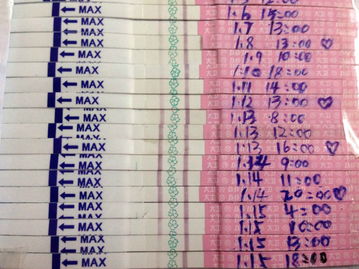 MAX 1.6 15:00
MAX 1.7 13:00
MAX 1.8 13:00 ♡
MAX 1.9 10:00
MAX 1.10 18:00
MAX 1.11 14:00
MAX 1.12 13:00 ♡
MAX 1.13 8:00
MAX 1.13 12:00
MAX 1.13 16:00 ♡
MAX 1.14 9:00
MAX 1.14 11:00
MAX 1.14 20:00 ♡
MAX 1.15 4:00
MAX 1.15 10:00
MAX 1.15 13:00
MAX 1.15 18:00